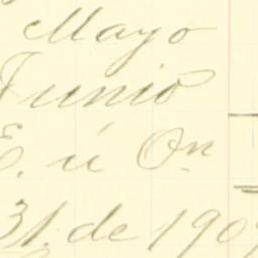 Mayo
Junio
E. ú On
31. de 190